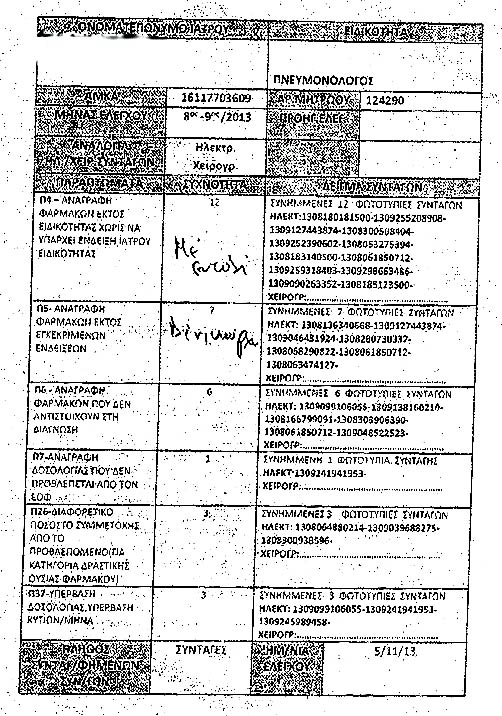 ΟΝΟΜΑΤΕΠΩΝΥΜΟ ΙΑΤΡΟΥ ΕΙΔΙΚΟΤΗΤΑ
ΠΝΕΥΜΟΝΟΛΟΓΟΣ
ΑΜΚΑ 16117703609 ΑΡ.ΜΗΤΡΩΟΥ 124290
ΜΗΝΑΣ ΕΛΕΓΧΟΥ 8ος-9ος/2013 ΠΡΟΗΓ.ΕΛΕΓ.
ΑΝΑΛΟΓΙΑ Ηλεκτρ.
ΗΛ./ΧΕΙΡ.ΣΥΝΤΑΓΩΝ Χειρογρ.
ΠΑΡΑΠΤΩΜΑΤΑ ΣΥΧΝΟΤΗΤΑ ΔΕΙΓΜΑ ΣΥΝΤΑΓΩΝ
Π4 – ΑΝΑΓΡΑΦΗ 12 ΣΥΝΗΜΜΕΝΕΣ 12 ΦΩΤΟΤΥΠΙΕΣ ΣΥΝΤΑΓΩΝ
ΦΑΡΜΑΚΩΝ ΕΚΤΟΣ ΗΛΕΚΤ:1308180181500-1309255208908-
ΕΙΔΙΚΟΤΗΤΑΣ ΧΩΡΙΣ ΝΑ 1309127443874-1308300508404-
ΥΠΑΡΧΕΙ ΕΝΔΕΙΞΗ ΙΑΤΡΟΥ 1309252390602-1308053275394-
ΕΙΔΙΚΟΤΗΤΑΣ 1308183140500-1308061850712-
1309259318403-1309298663486-
1309090263352-1308185123500-
ΧΕΙΡΟΓΡ:
Π5- ΑΝΑΓΡΑΦΗ 7 ΣΥΝΗΜΜΕΝΕΣ 7 ΦΩΤΟΤΥΠΙΕΣ ΣΥΝΤΑΓΩΝ
ΦΑΡΜΑΚΩΝ ΕΚΤΟΣ ΗΛΕΚΤ: 1308136340668-1309127443874-
ΕΓΚΕΚΡΙΜΕΝΩΝ 1309046431924-1308280730332-
ΕΝΔΕΙΞΕΩΝ 1308068290822-1308061850712-
1308063474127-
ΧΕΙΡΟΓΡ:
Π6 - ΑΝΑΓΡΑΦΗ 6 ΣΥΝΗΜΜΕΝΕΣ 6 ΦΩΤΟΤΥΠΙΕΣ ΣΥΝΤΑΓΩΝ
ΦΑΡΜΑΚΩΝ ΠΟΥ ΔΕΝ ΗΛΕΚΤ: 1309099106055-1309138160210-
ΑΝΤΙΣΤΟΙΧΟΥΝ ΣΤΗ 1308166799091-1308303906390-
ΔΙΑΓΝΩΣΗ 1308061850712-1309048522523-
ΧΕΙΡΟΓΡ:
Π7-ΑΝΑΓΡΑΦΗ 1 ΣΥΝΗΜΜΕΝΗ 1 ΦΩΤΟΤΥΠΙΑ ΣΥΝΤΑΓΗΣ
ΔΟΣΟΛΟΓΙΑΣ ΠΟΥ ΔΕΝ ΗΛΕΚΤ:1309241941953-
ΠΡΟΒΛΕΠΕΤΑΙ ΑΠΟ ΤΟΝ ΧΕΙΡΟΓΡ:
ΕΟΦ
Π26-ΔΙΑΦΟΡΕΤΙΚΟ 3 ΣΥΝΗΜΜΕΝΕΣ 3 ΦΩΤΟΤΥΠΙΕΣ ΣΥΝΤΑΓΩΝ
ΠΟΣΟΣΤΟ ΣΥΜΜΕΤΟΧΗΣ ΗΛΕΚΤ: 1308064880214-1309039688275-
ΑΠΟ ΤΟ 1308300938596-
ΠΡΟΒΛΕΠΟΜΕΝΟ(ΓΙΑ ΧΕΙΡΟΓΡ:
ΚΑΤΗΓΟΡΙΑ ΔΡΑΣΤΙΚΗΣ
ΟΥΣΙΑΣ ΦΑΡΜΑΚΟΥ)
Π37-ΥΠΕΡΒΑΣΗ 3 ΣΥΝΗΜΜΕΝΕΣ 3 ΦΩΤΟΤΥΠΙΕΣ ΣΥΝΤΑΓΩΝ
ΔΟΣΟΛΟΓΙΑΣ,ΥΠΕΡΒΑΣΗ ΗΛΕΚΤ: 1309099106055-1309241941953-
ΚΥΤΙΩΝ/ΜΗΝΑ 1309245989458-
ΧΕΙΡΟΓΡ:
ΠΛΗΘΟΣ ΣΥΝΤΑΓΕΣ ΗΜ/ΝΙΑ 5/11/13
ΕΛΕΓΧΟΥ